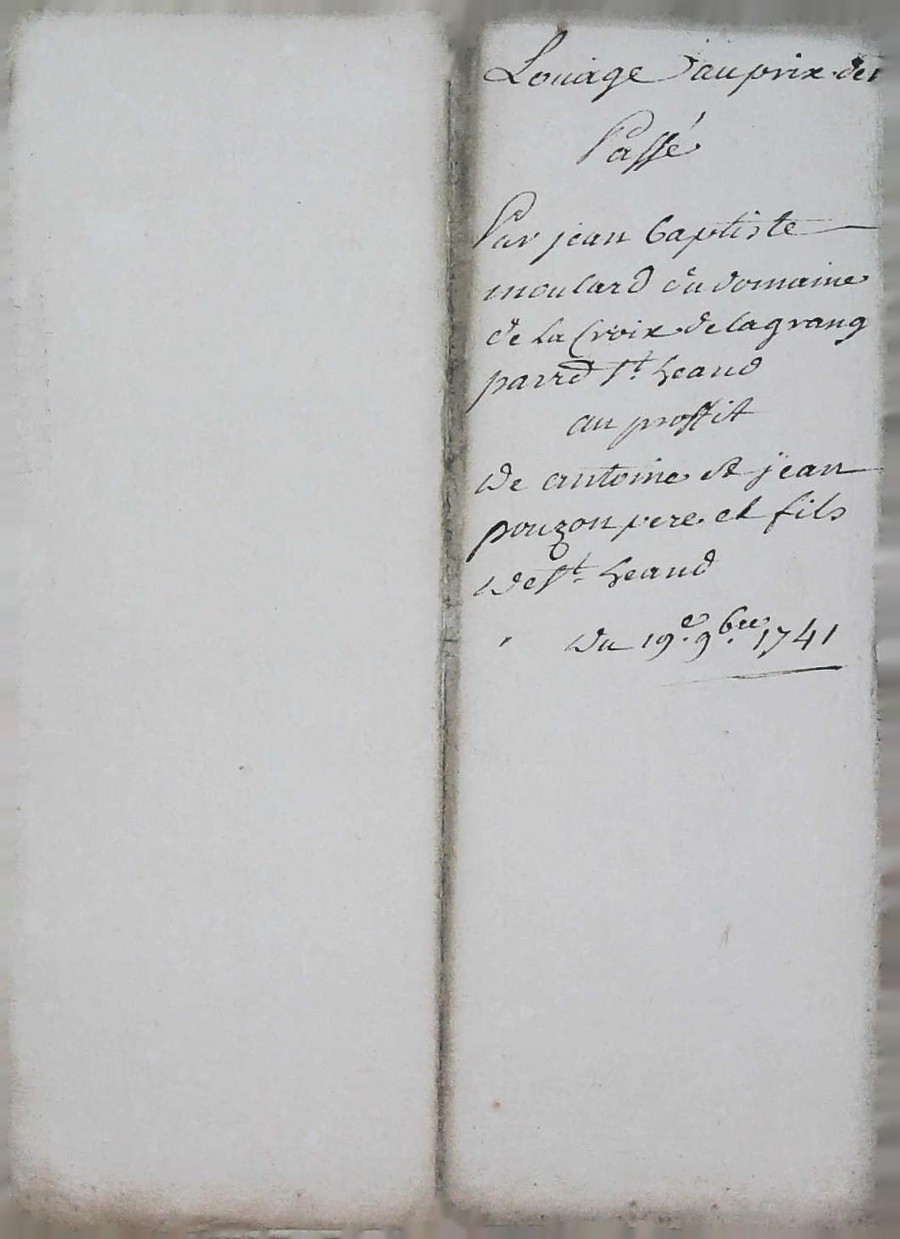 Louage au prix de
Passé
Par jean baptiste
moulard du domaine
de la Croix de lagrang
parr.d St heand
au proffit
De antoine et jean
pouzon pere et fils
De St heand
Du 19e 9bre 1741